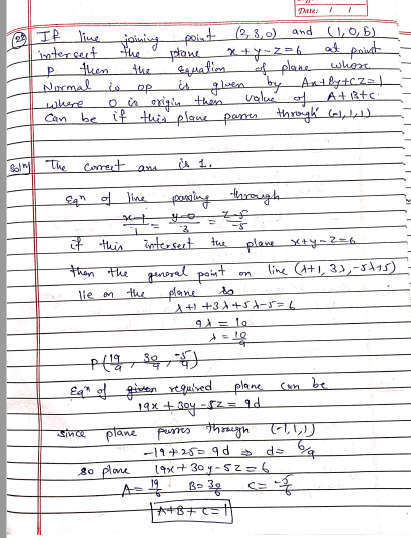 Date: / /
If line joining point (2,3,0) and (1,0,5)
intersect the plane x+y-z=6 at point
P then the equation of plane whose
Normal is OP is given by Ax+By+Cz=1
where O is origin then value of A+B+C
can be if this plane passes through (-1,1,1)
Soln The correct ans is 1.
Eqn of line passing through
x-1/1 = y-0/3 = z-5/-5
if this intersect the plane x+y-z=6
then the general point on line (λ+1, 3λ, -5λ+5)
lie on the plane so
λ+1+3λ+5λ-5=6
9λ = 10
λ = 10/9
P(19/9, 30/9, -5/9)
Eqn of given required plane can be
19x + 30y - 5z = 9d
since plane passes through (-1,1,1)
-19+25 = 9d ⇒ d = 6/9
so plane 19x + 30y - 5z = 6
A = 19/6 B = 30/6 C = -5/6
A+B+C=1